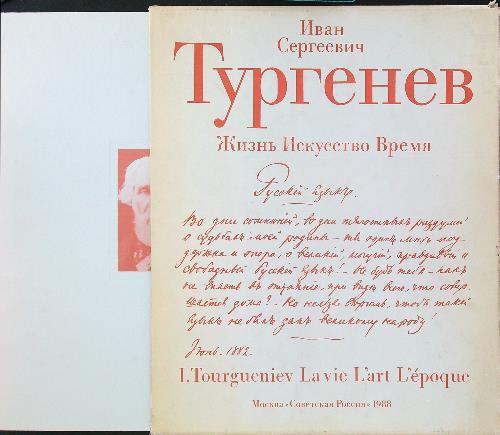 Иван
Сергеевич
Тургенев
Жизнь Искусство Время
Русскій языкъ.
Во дни сомнѣній, во дни тягостныхъ раздумій
о судьбахъ моей родины – ты одинъ мнѣ под-
держка и опора, о великій, могучій, правдивый и
свободный Русскій языкъ! – Не будь тебя – какъ
не впасть въ отчаяніе, при видѣ всего, что совер-
шается дома? – Но нельзя вѣрить, чтобъ такой
языкъ не былъ данъ великому народу!
Іюнь. 1882.
I.Tourgueniev La vie L'art L'époque
Москва «Советская Россия» 1988